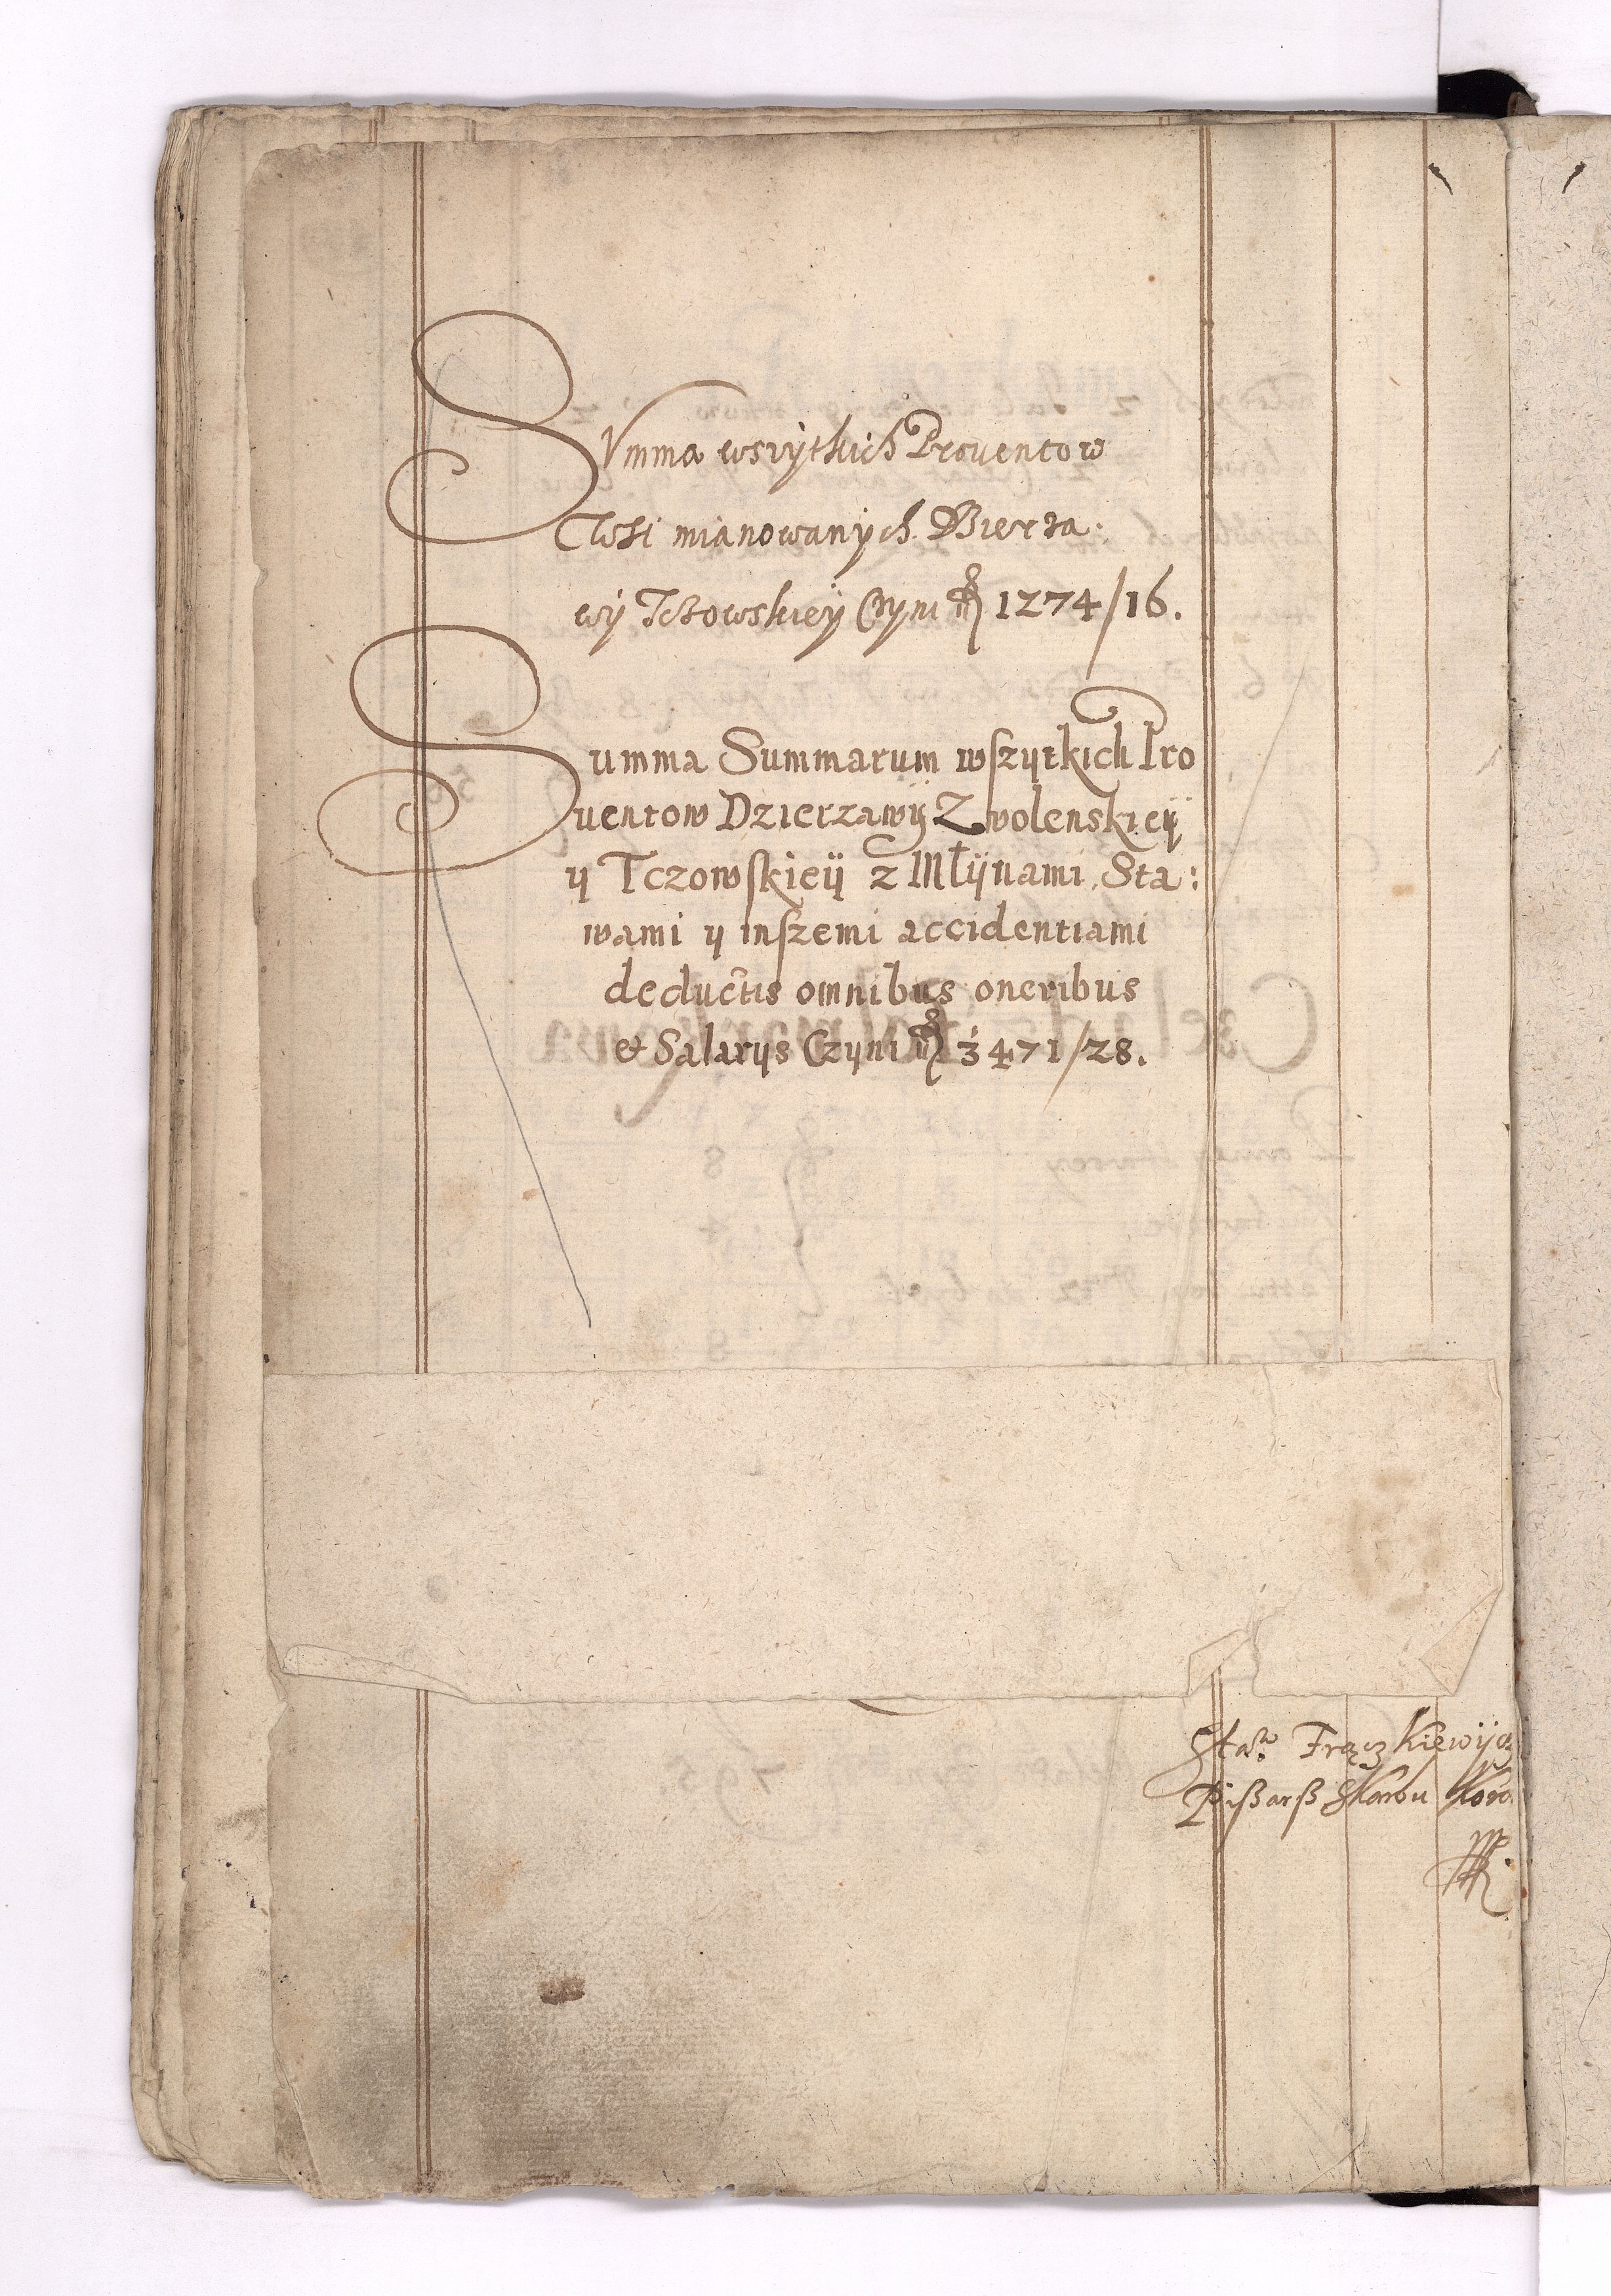 SVmma wszytkich Prouentow
Wsi mianowanych Dzierza:
wy Tczowskiey Czyni fl 1274/16.
Summa Summarum wszytkich Pro
uentow Dzierzawÿ Zwolenskieÿ
y Tczowskieÿ z Młÿnami, Sta:
wami y inszemi accidentiami
deductis omnibus oneribus
et Salarÿs Czyni fl 3471/28.
Staw Frączkiewÿcz
Pißarß Skarbu Koro